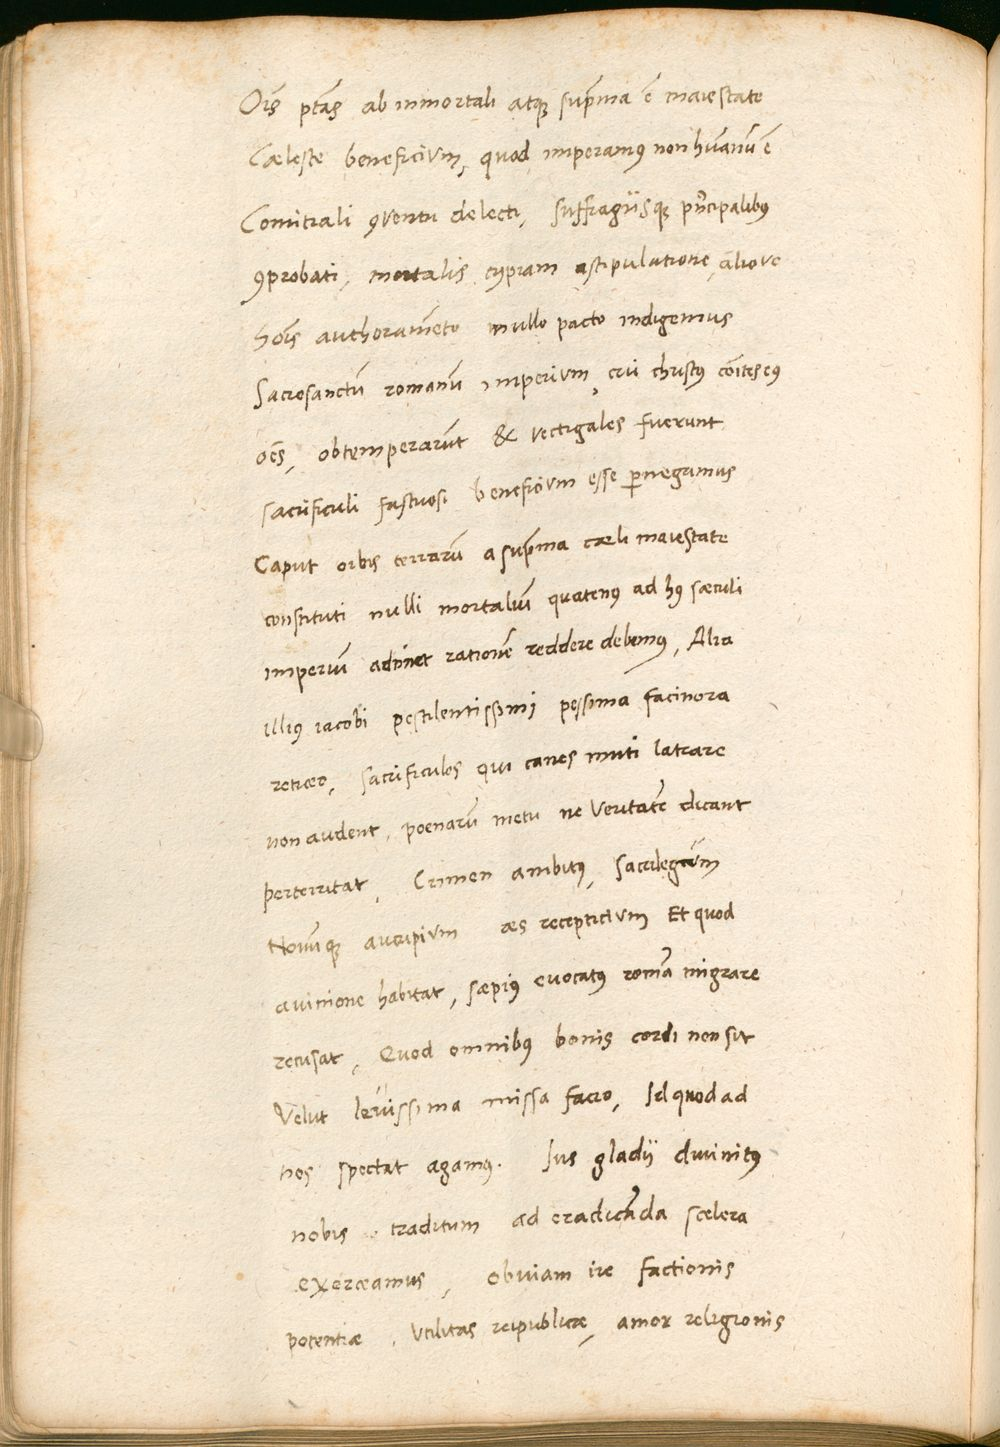 Oı̄s ptās ab inmortali atqꝫ sup̄ma ē maiestate
Cæleste beneficium, quod imperamꝰ non hūanū ē
Comitiali ꝯventu delecti, suffragiisqꝫ prı̄cipalibꝰ
ꝯprobati, mortalis etiam astipulatione, aliove
hoı̄s authoramēto nullo pacto indigemus
Sacrosanctū romanū imperium, cui christꝰ cōitesꝗꝫ
oēs, obtemperarūt & vectigales fuerunt
sacrificuli fastuosi beneficium esse ꝑnegamus
Caput orbis terrarū a sup̄ma cæli maiestate
constituti nulli mortaliū quatenꝰ ad hꝰ sæculi
imperiū adtinet rationē reddere debemꝰ, Alia
illiꝰ iacobi pestilentissimi pessima facinora
reticeo, sacrificulos qui canes muti latrare
non audent, poenarū metu ne veritatē dicant
perterritat, Crimen ambitꝰ, sacrilegium
Novūqꝫ aucupium æs receptitium Et quod
avinione habitat, sæpiꝰ evocatꝰ romā migrare
recusat, Quod omnibꝰ bonis cordi non sit
Velut levissima missa facio, Id quod ad
nos spectat agamꝰ. Ius gladii divinitꝰ
nobis traditum ad eradicāda scelera
exerceamus, obviam ire factionis
potentiæ, utilitas reipublicæ, amor religionis